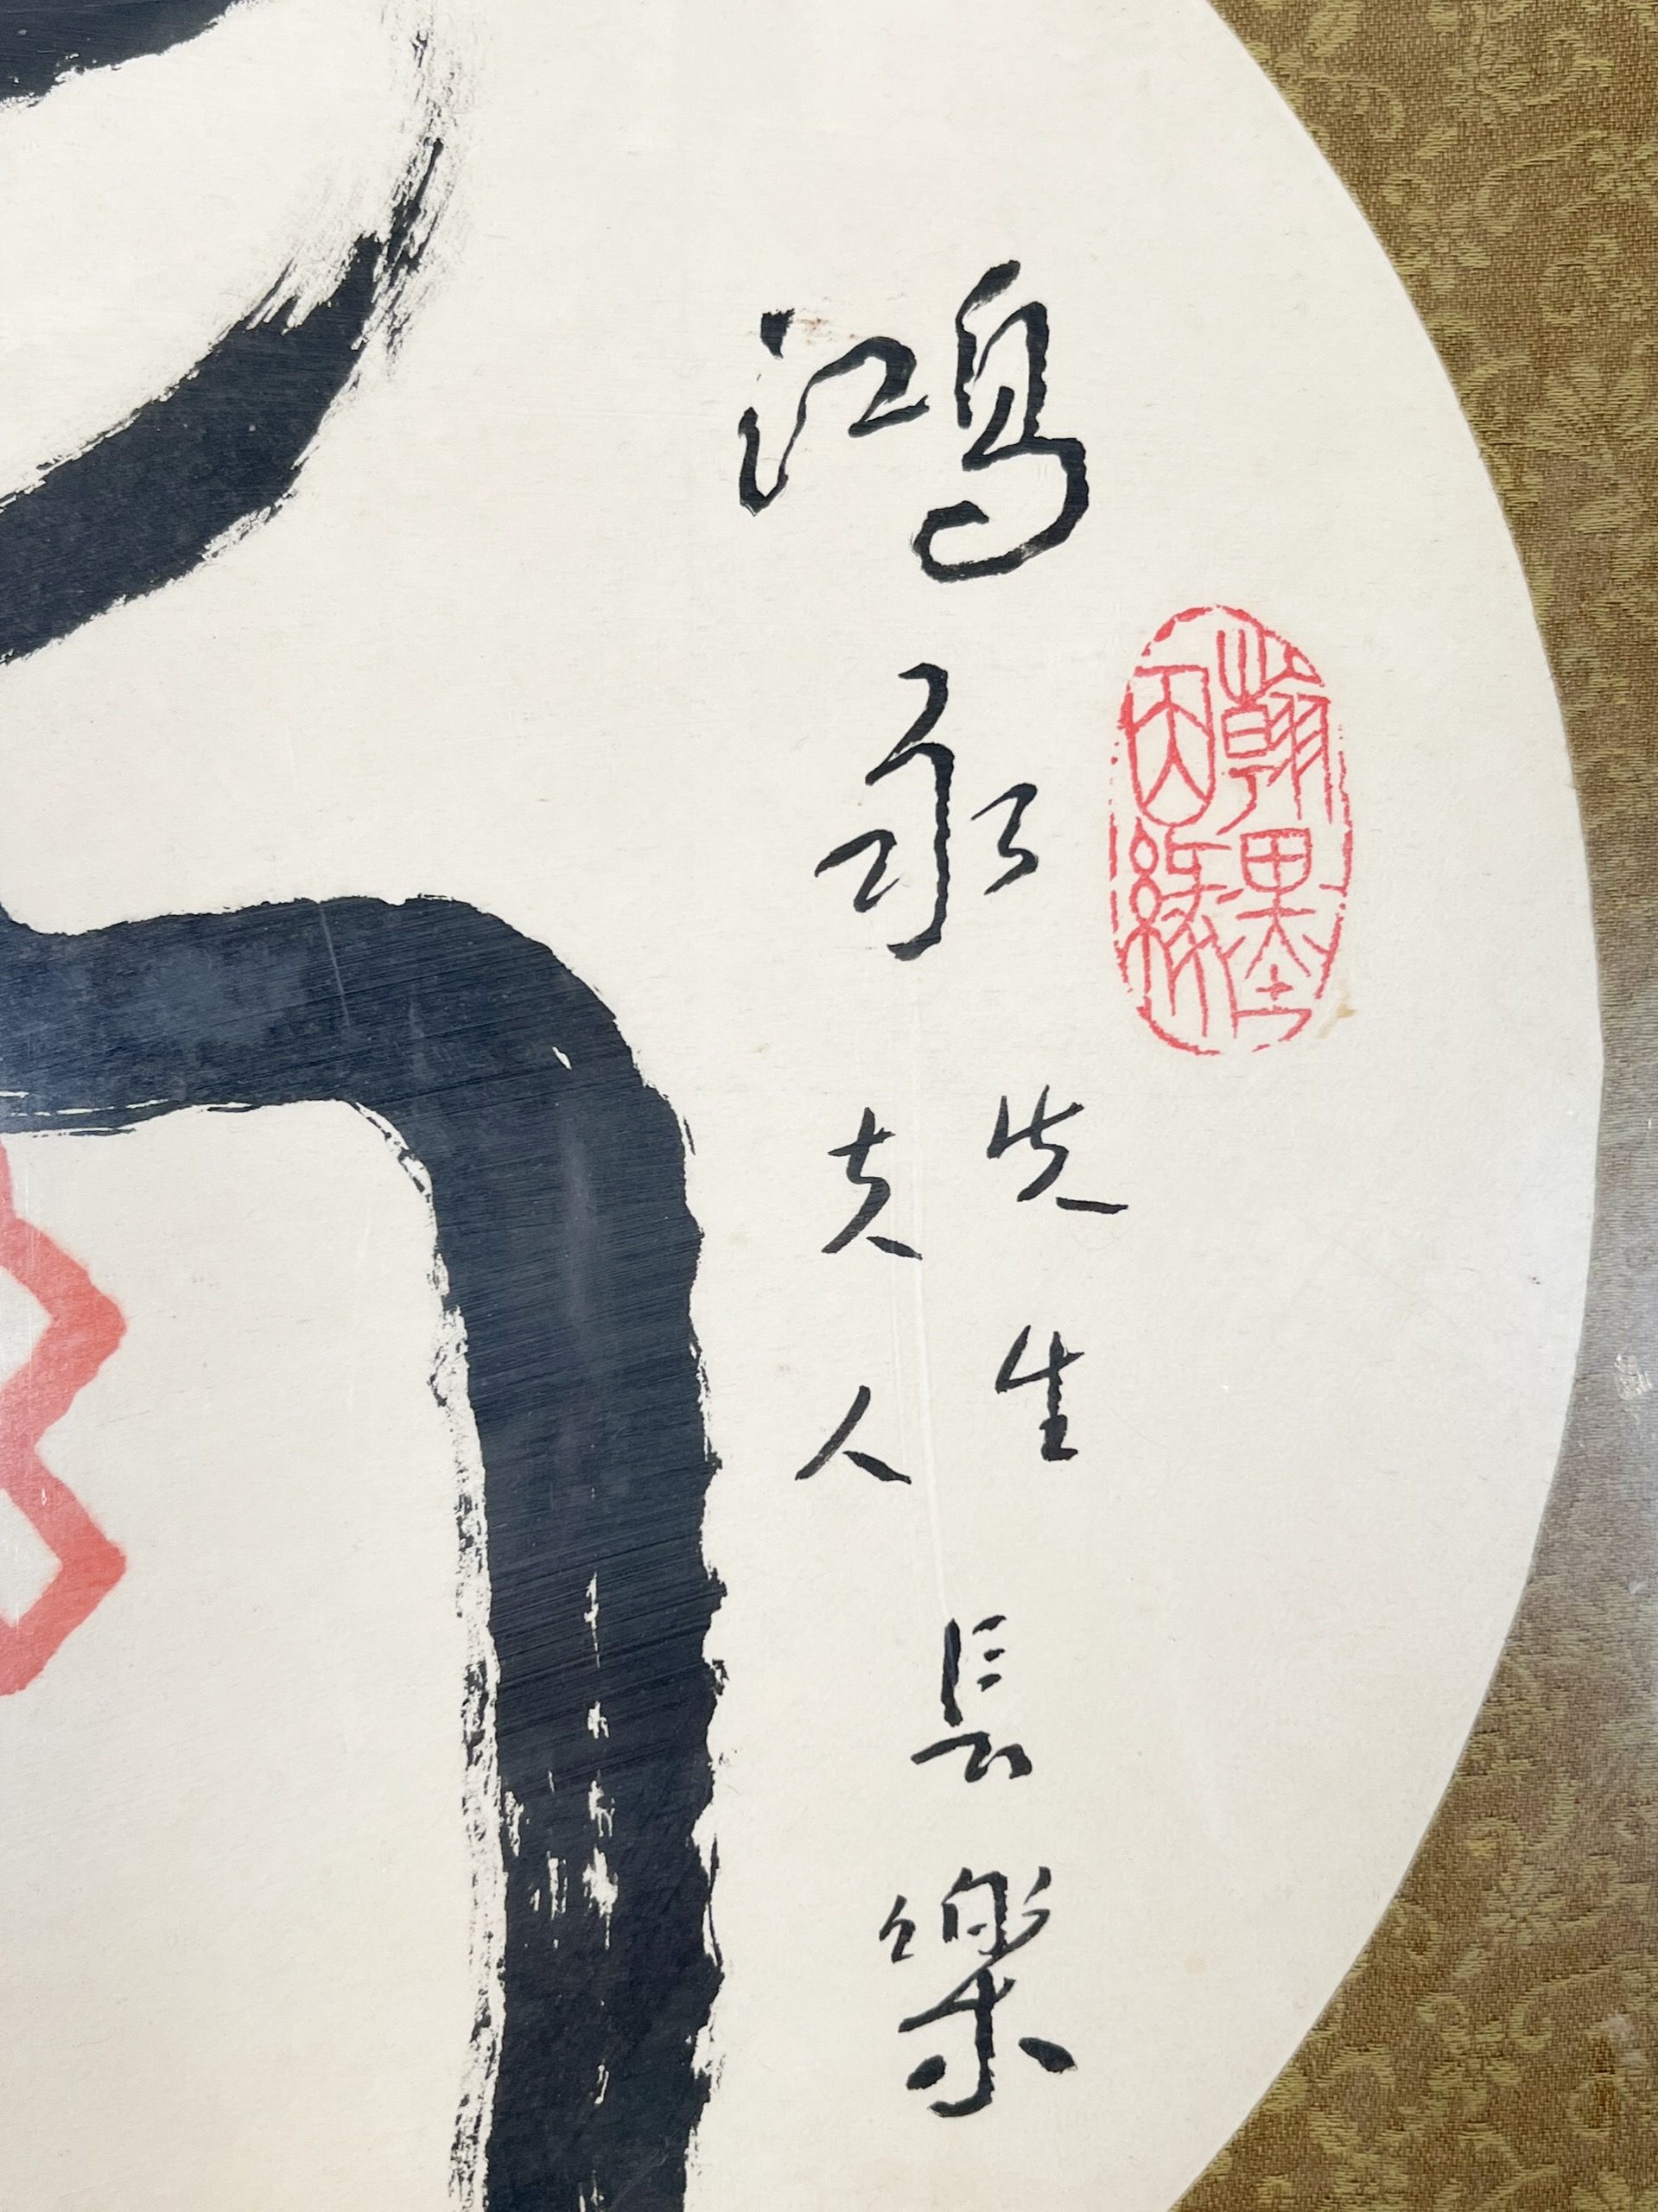 鴻永
先生
夫人
長樂
翰墨因緣